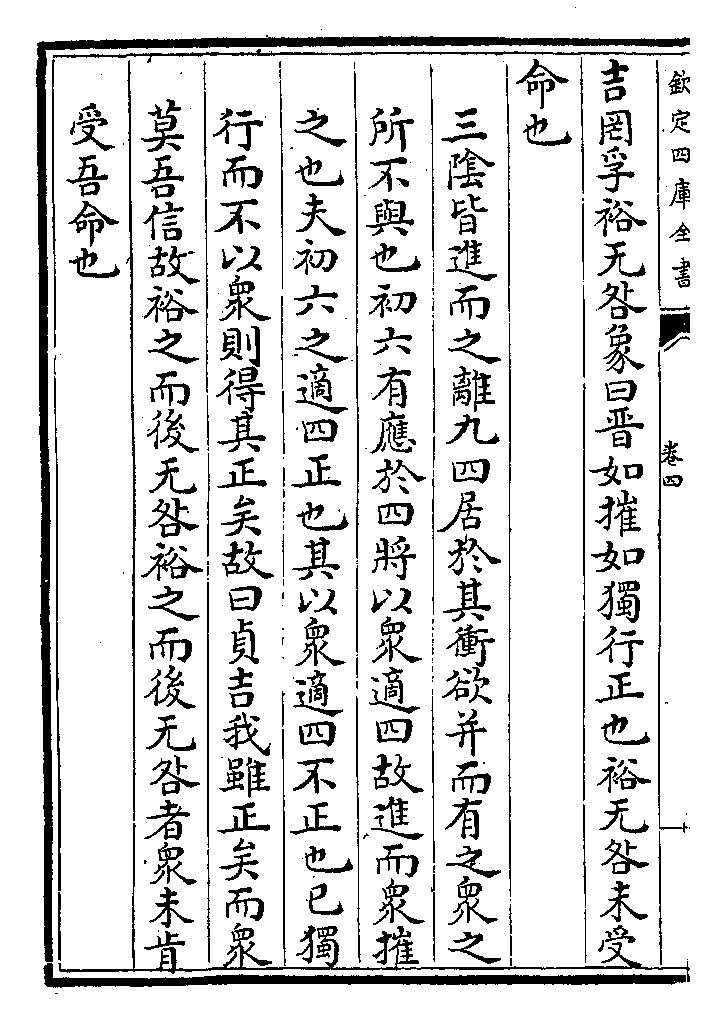 欽定四庫全書
卷四
吉罔孚裕无咎象曰晋如摧如獨行正也裕无咎未受
命也
三陰皆進而之離九四居於其衝欲并而有之衆之
所不與也初六有應於四將以衆適四故進而衆摧
之也夫初六之適四正也其以衆適四不正也已獨
行而不以衆則得其正矣故曰貞吉我雖正矣而衆
莫吾信故裕之而後无咎裕之而後无咎者衆未肯
受吾命也